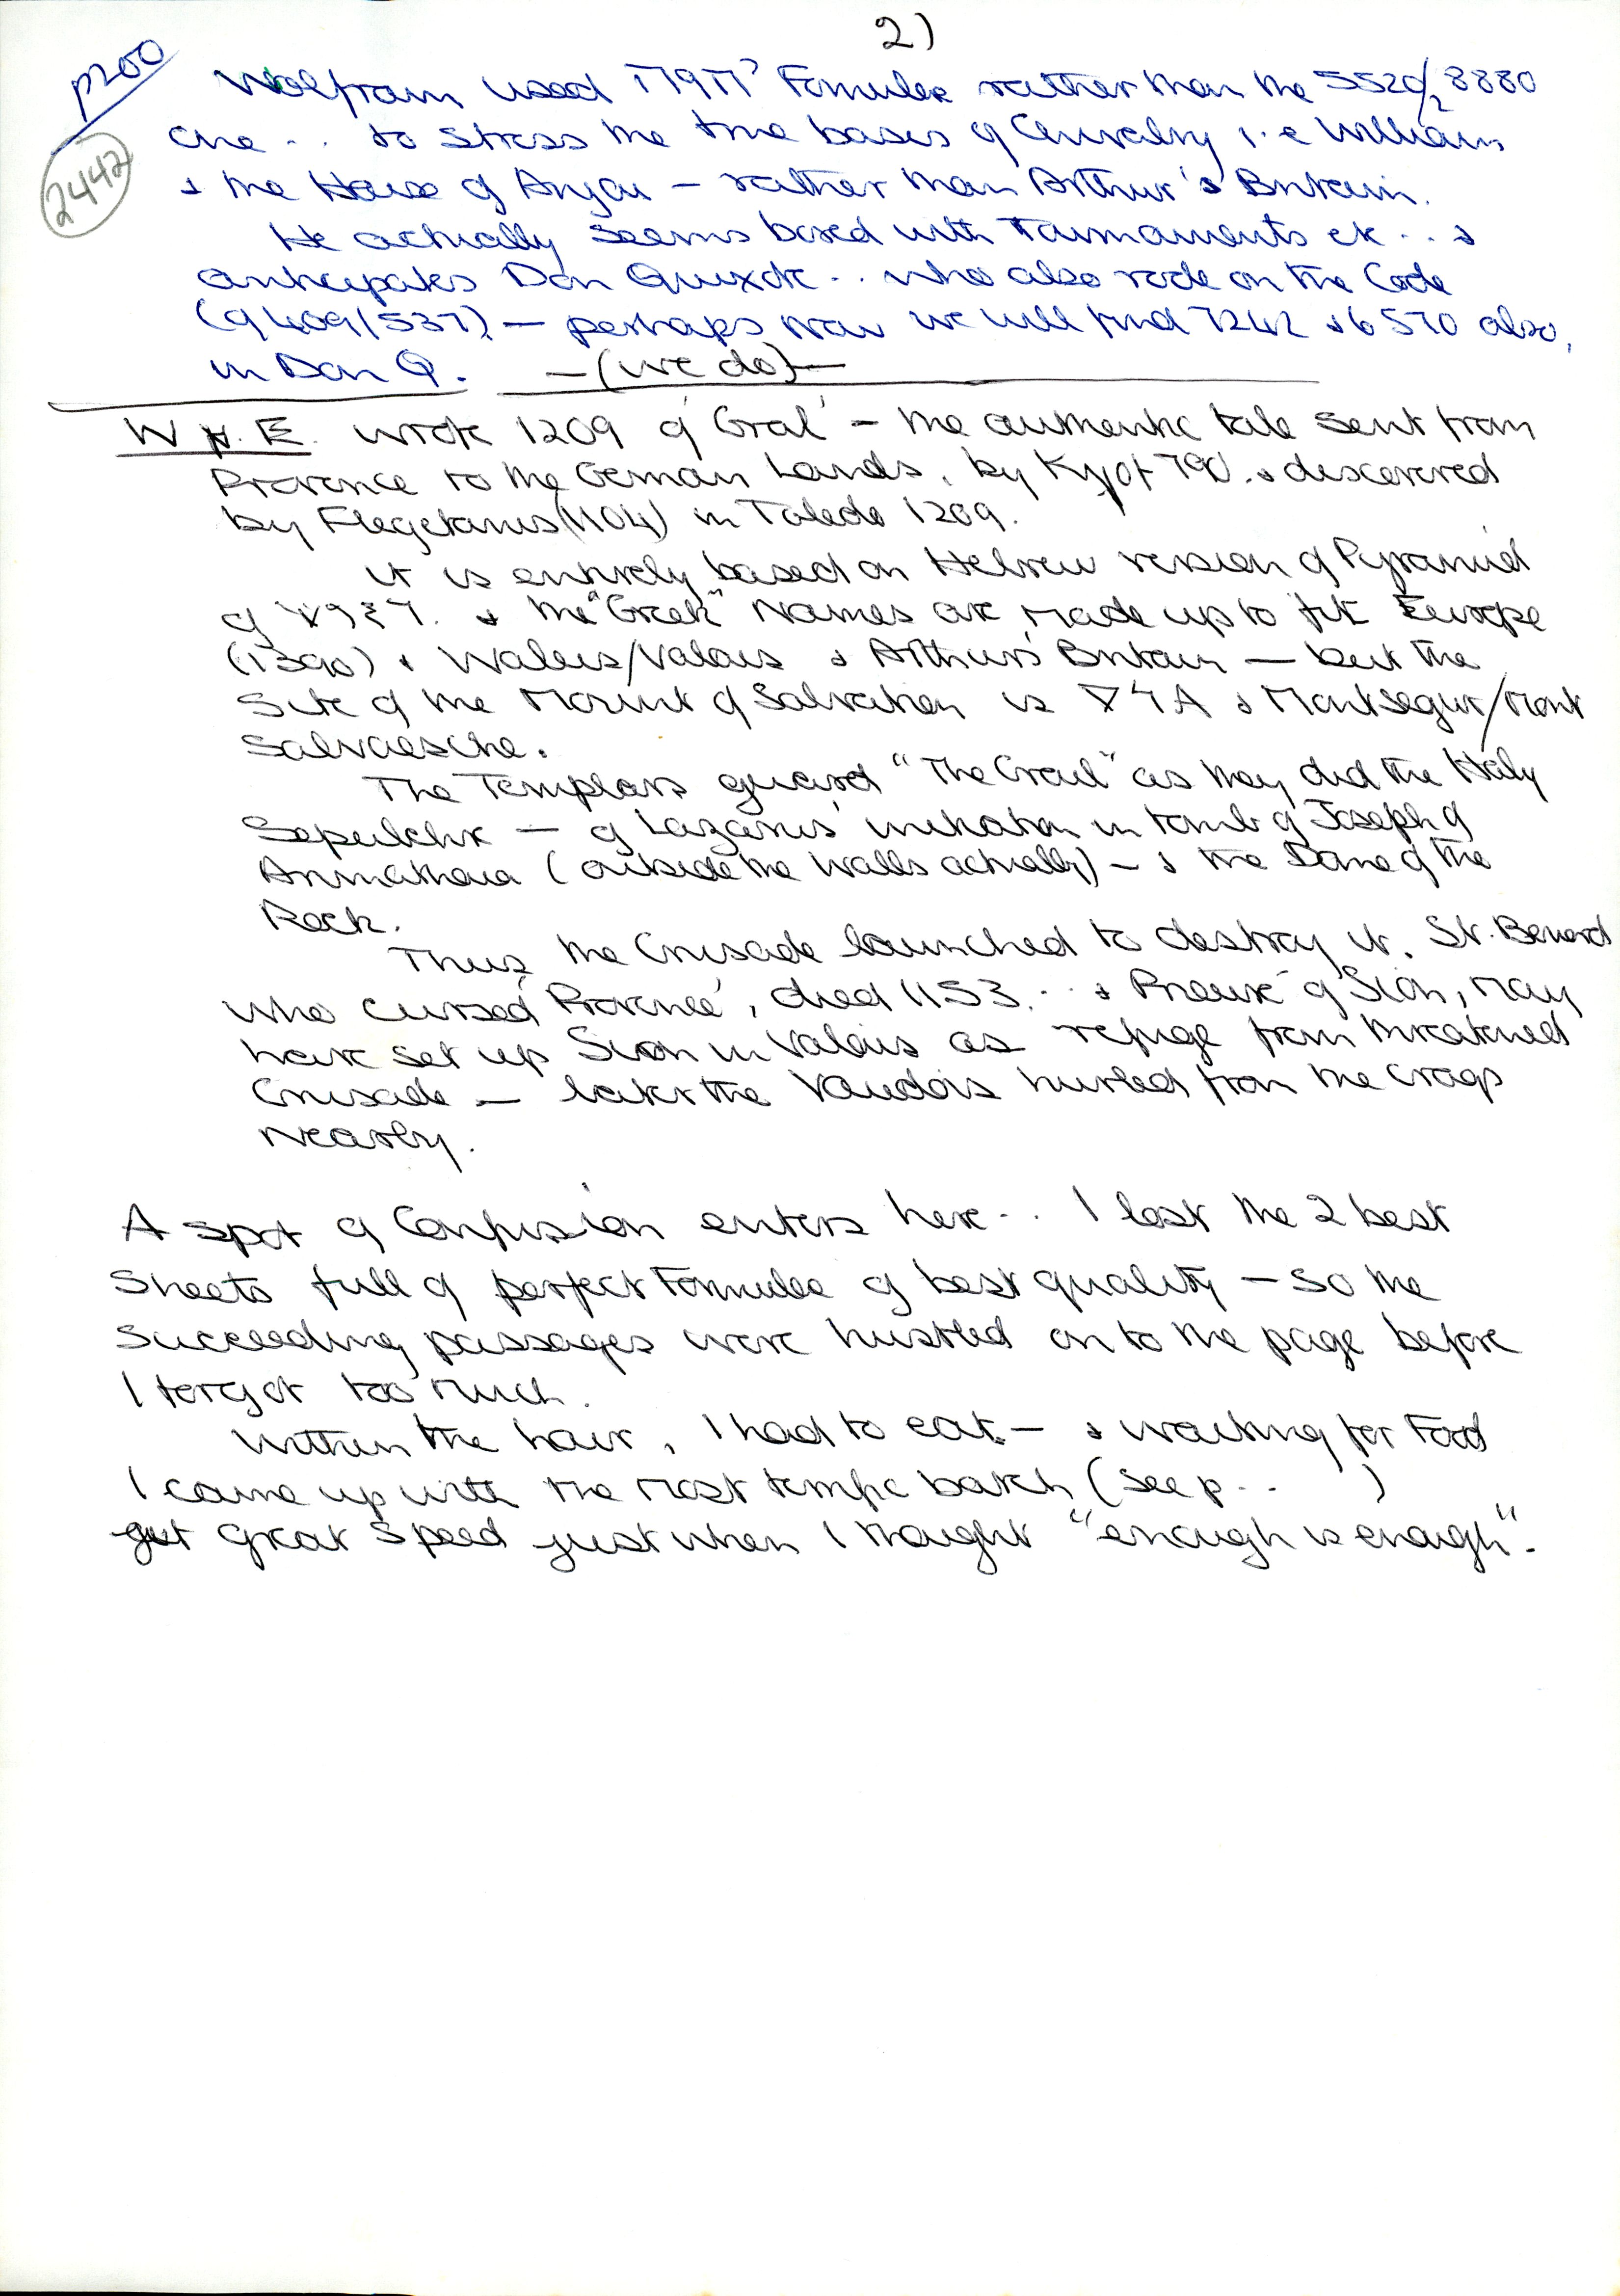 2)
p200
2442
Wolfram used Formulae rather than the 5520/2 8880
one .. to stress the true bases of Chivalry i.e William
& the House of Anjou – rather than Arthur's Britain.
He actually seems bored with Tournaments etc .. &
anticipates Don Quixote .. who also rode on the Code
(of 409/537) – perhaps now we will find 7242 & 6570 also,
in Don Q. –(we do)–
W. v. E. wrote 1209 of 'Gral' – the authentic tale sent from
Provence to the German Lands, by Kyot 790. & discovered
by Flegetanis (1104) in Toledo 1209.
It is entirely based on Hebrew version of Pyramid
of & the "Greek" Names are made up to fit Europe
(1390) & Waleis/Valois & Arthur's Britain – but the
Site of the Mount of Salvation is & Montsegur/Mont
Salvaesche.
The Templars guard "The Grail" as they did the Holy
Sepulchre – of Lazarus' initiation in tomb of Joseph of
Arimathaea (outside the Walls actually) – & the Dome of the
Rock.
Thus, the Crusade launched to destroy it. St. Bernard
who cursed 'Provence', died 1153. .. & Prieure of Sion, may
have set up Sion in Valais as refuge from threatened
Crusade – later the Vaudois hurled from the crags
nearby.
A spot of Confusion enters here .. I lost the 2 best
Sheets full of perfect Formulae of best quality – so the
succeeding passages were hustled on to the page before
I forgot too much.
Within the hour, I had to eat – & waiting for Food
I came up with the most terrific batch (see p.. )
at great speed just when I thought "enough is enough".